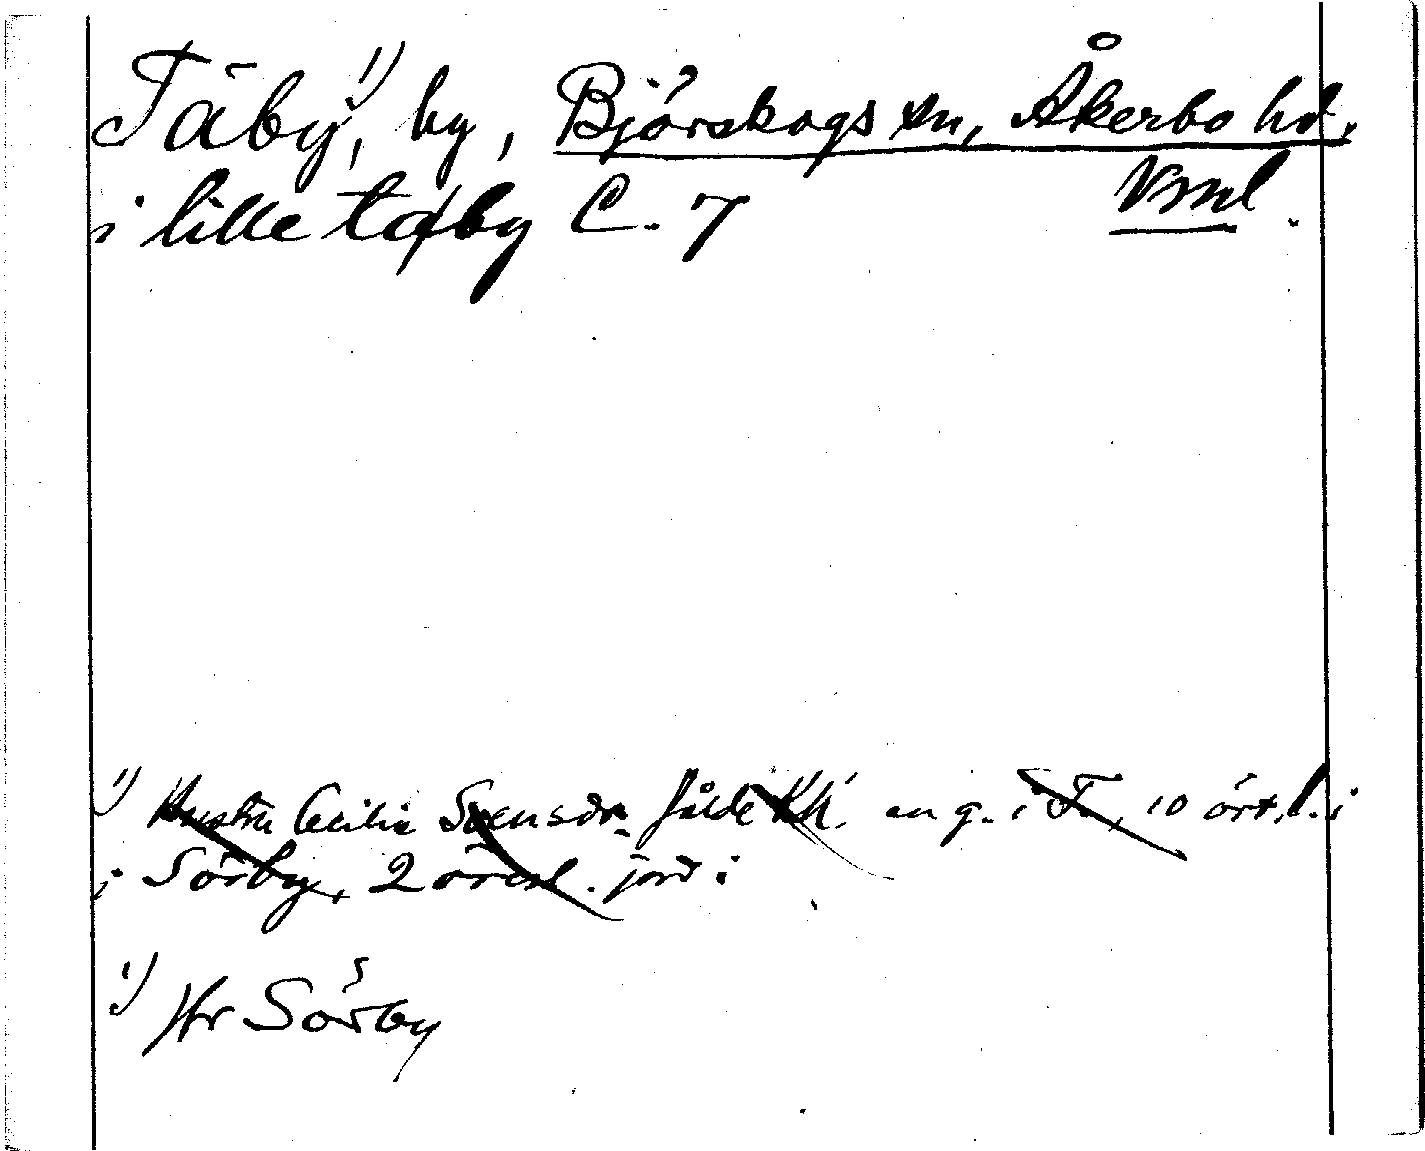 Täby¹⁾, by, Björskogs sn, Åkerbo hd,
Vsml.
i lille täby C. 7
¹⁾ Hustru Cecilia Svensdr. sålde KK. en g. i T., 10 örtl. i
i Sörby, 2 öresl. jord i
¹⁾ Hr Sörby